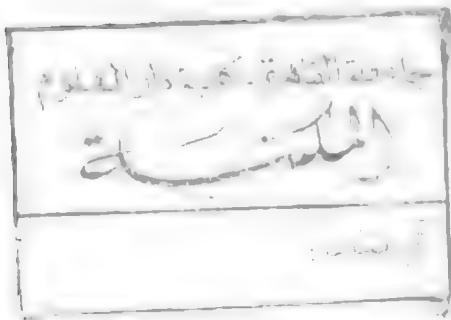 جامعة القاهرة - كلية دار العلوم
المكتبة